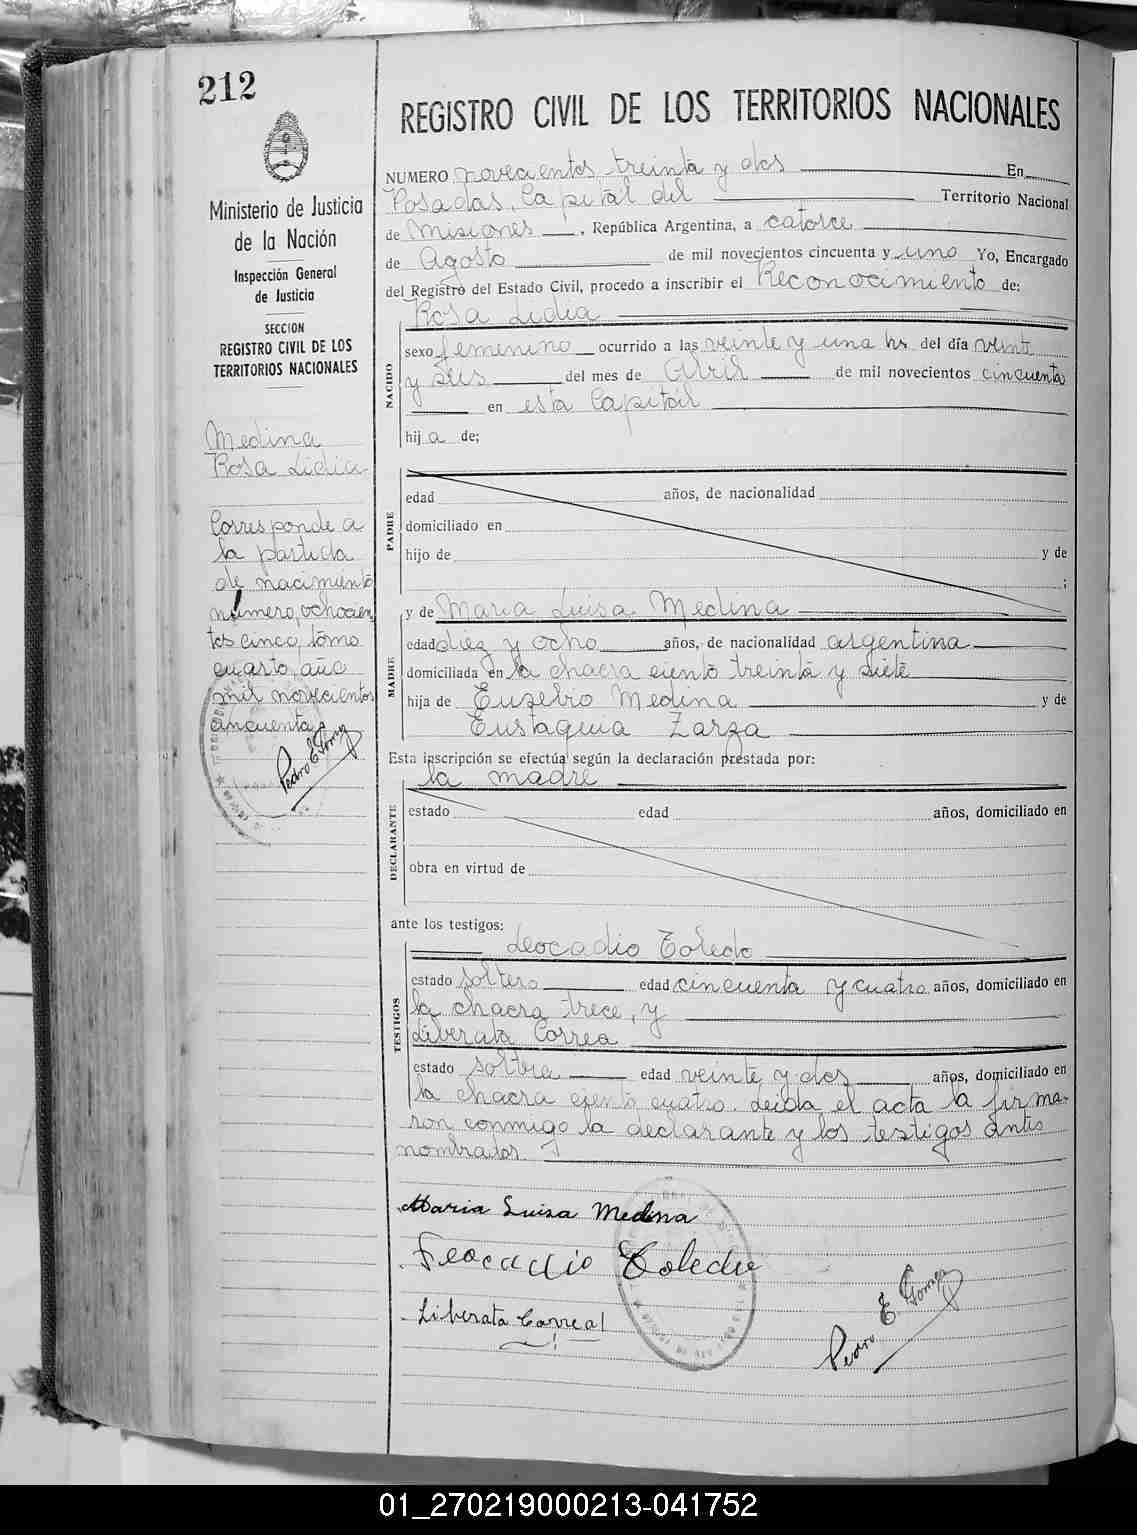 212
Ministerio de Justicia
de la Nación
Inspección General
de Justicia
SECCION
REGISTRO CIVIL DE LOS
TERRITORIOS NACIONALES
Medina
Rosa Lidia
Corresponde a
la partida
de nacimiento
número, ochocien
tos cinco, tomo
cuarto, año
mil novecientos
cincuenta
Pedro E. Gomez
REGISTRO CIVIL DE LOS TERRITORIOS NACIONALES
NUMERO novecientos treinta y dos En
Posadas, Capital del Territorio Nacional
de Misiones, República Argentina, a catorce
de Agosto de mil novecientos cincuenta y uno Yo, Encargado
del Registro del Estado Civil, procedo a inscribir el Reconocimiento de:
Rosa Lidia
NACIDO
sexo femenino ocurrido a las veinte y una hs del día veint
y seis del mes de Abril de mil novecientos cincuenta
en esta Capital
hija de;
PADRE
edad años, de nacionalidad
domiciliado en
hijo de y de
;
MADRE
y de Maria Luisa Medina
edad diez y ocho años, de nacionalidad argentina
domiciliada en la chacra ciento treinta y siete
hija de Eusebio Medina y de
Eustaquia Zarza
Esta inscripción se efectúa según la declaración prestada por:
la madre
DECLARANTE
estado edad años, domiciliado en
obra en virtud de
ante los testigos:
Leocadio Toledo
TESTIGOS
estado soltero edad cincuenta y cuatro años, domiciliado en
la chacra trece, y
Liberata Correa
estado soltera edad veinte y dos años, domiciliado en
la chacra ciento cuatro. Leida el acta la firma-
ron conmigo la declarante y los testigos antes
nombrados.
Maria Luisa Medina
Leocadio Toledo
Liberata Correa
Pedro E. Gomez
01_270219000213-041752